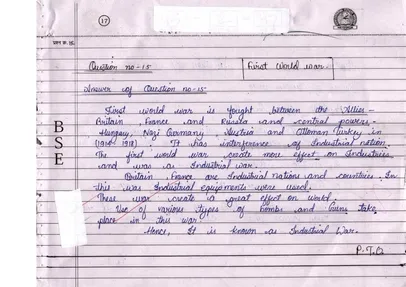 17
Question no-15
First World war.
Answer of Question no-15-
First world war is fought between the Allies-
Britain, France and Russia and central powers-
Hungary, Nazi Germany, Austria and Ottoman Turkey in
(1914-1918). It has interference of Industrial nation.
The first world war create more effort on Industries
and was a Industrial war.
Britain, France are Industrial nations and countries. In
this was Industrial equipments were used.
These war create a great effort on world.
Use of various types of bombs and Guns take
place in this war.
Hence, It is known as Industrial War.
P.T.O.
BSE